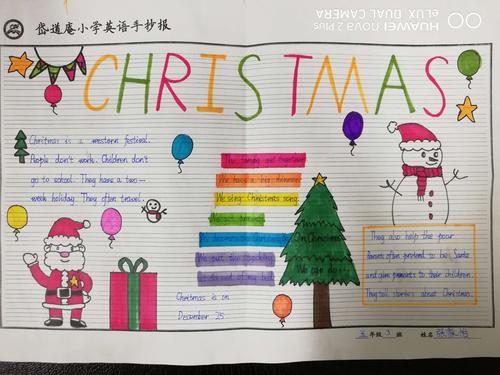 岱道庵小学英语手抄报
HUAWEI nova 2 Plus
eLUX DUAL CAMERA
CHRISTMAS
Chritmas is a western festival.
People don't work. Children don't
go to school. They have a two-
week holiday. They often travel.
The family get together
We have a big dinner
We sing Christmas song.
On Christmas
We can do
Christmas is on
December 25.
They also help the poor
farents often pretend to be Santa
and give presents to their children
They tell stories about Christmas.
五年级 3 班 姓名